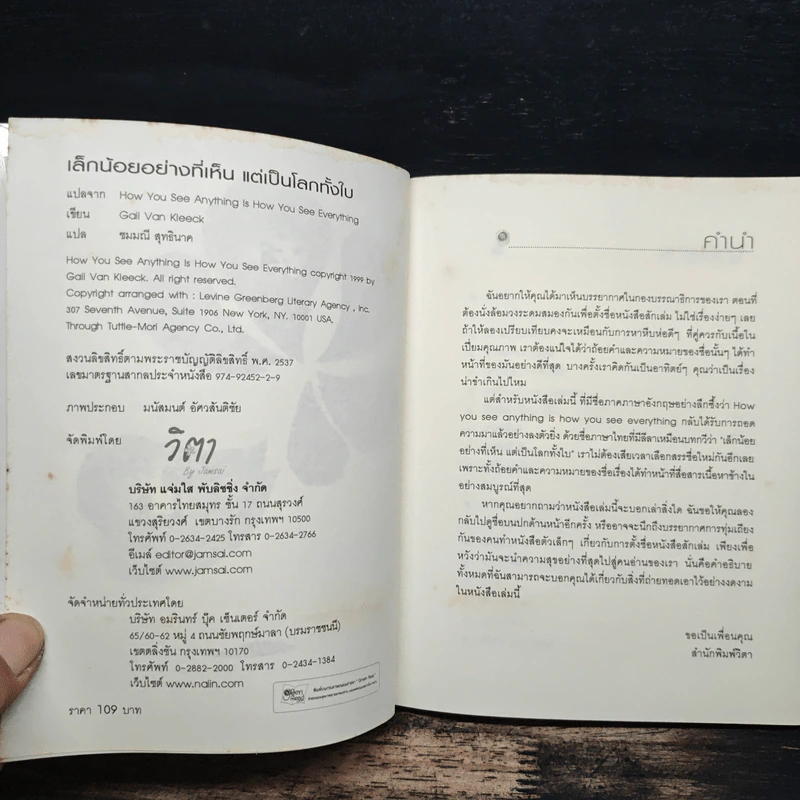 เล็กน้อยอย่างที่เห็น แต่เป็นโลกทั้งใบ
แปลจาก How You See Anything Is How You See Everything
เขียน Gail Van Kleeck
แปล ชมมณี สุทธินาค
How You See Anything Is How You See Everything copyright 1999 by
Gail Van Kleeck. All right reserved.
Copyright arranged with : Levine Greenberg Literary Agency , Inc.
307 Seventh Avenue, Suite 1906 New York, NY. 10001 USA.
Through Tuttle-Mori Agency Co., Ltd.
สงวนลิขสิทธิ์ตามพระราชบัญญัติลิขสิทธิ์ พ.ศ. 2537
เลขมาตรฐานสากลประจำหนังสือ 974-92452-2-9
ภาพประกอบ มนัสมนต์ อัศวสันติชัย
จัดพิมพ์โดย วิตา
By Jamsai
บริษัท แจ่มใส พับลิชชิ่ง จำกัด
163 อาคารไทยสมุทร ชั้น 17 ถนนสุรวงศ์
แขวงสุริยวงศ์ เขตบางรัก กรุงเทพฯ 10500
โทรศัพท์ 0-2634-2425 โทรสาร 0-2634-2766
อีเมล์ editor@jamsai.com
เว็บไซต์ www.jamsai.com
จัดจำหน่ายทั่วประเทศโดย
บริษัท อมรินทร์ บุ๊ค เซ็นเตอร์ จำกัด
65/60-62 หมู่ 4 ถนนชัยพฤกษ์มาลา (บรมราชชนนี)
เขตตลิ่งชัน กรุงเทพฯ 10170
โทรศัพท์ 0-2882-2000 โทรสาร 0-2434-1384
เว็บไซต์ www.naiin.com
ราคา 109 บาท
คำนำ
ฉันอยากให้คุณได้มาเห็นบรรยากาศในกองบรรณาธิการของเรา ตอนที่
ต้องนั่งล้อมวงระดมสมองกันเพื่อตั้งชื่อหนังสือสักเล่ม ไม่ใช่เรื่องง่ายๆ เลย
ถ้าให้ลองเปรียบเทียบคงจะเหมือนกับการหาหีบห่อดีๆ ที่คู่ควรกับเนื้อใน
เปี่ยมคุณภาพ เราต้องแน่ใจได้ว่าถ้อยคำและความหมายของชื่อนั้นๆ ได้ทำ
หน้าที่ของมันอย่างดีที่สุด บางครั้งเราคิดกันเป็นอาทิตย์ๆ คุณว่าเป็นเรื่อง
น่าขำเกินไปไหม
แต่สำหรับหนังสือเล่มนี้ ที่มีชื่อภาคภาษาอังกฤษอย่างลึกซึ้งว่า How
you see anything is how you see everything กลับได้รับการถอด
ความมาแล้วอย่างลงตัวยิ่ง ด้วยชื่อภาษาไทยที่มีลีลาเหมือนบทกวีว่า "เล็กน้อย
อย่างที่เห็น แต่เป็นโลกทั้งใบ" เราไม่ต้องเสียเวลาเลือกสรรชื่อใหม่กันอีกเลย
เพราะทั้งถ้อยคำและความหมายของชื่อเรื่องได้ทำหน้าที่สื่อสารเนื้อหาข้างใน
อย่างสมบูรณ์ที่สุด
หากคุณอยากถามว่าหนังสือเล่มนี้จะบอกเล่าสิ่งใด ฉันขอให้คุณลอง
กลับไปดูชื่อบนปกด้านหน้าอีกครั้ง หรืออาจจะนึกถึงบรรยากาศการทุ่มเถียง
กันของคนทำหนังสือตัวเล็กๆ เกี่ยวกับการตั้งชื่อหนังสือสักเล่ม เพียงเพื่อ
หวังว่ามันจะนำความสุขอย่างที่สุดไปสู่คนอ่านของเรา นั่นคือคำอธิบาย
ทั้งหมดที่ฉันสามารถจะบอกคุณได้เกี่ยวกับสิ่งที่ถ่ายทอดเอาไว้อย่างงดงาม
ในหนังสือเล่มนี้
ขอเป็นเพื่อนคุณ
สำนักพิมพ์วิตา